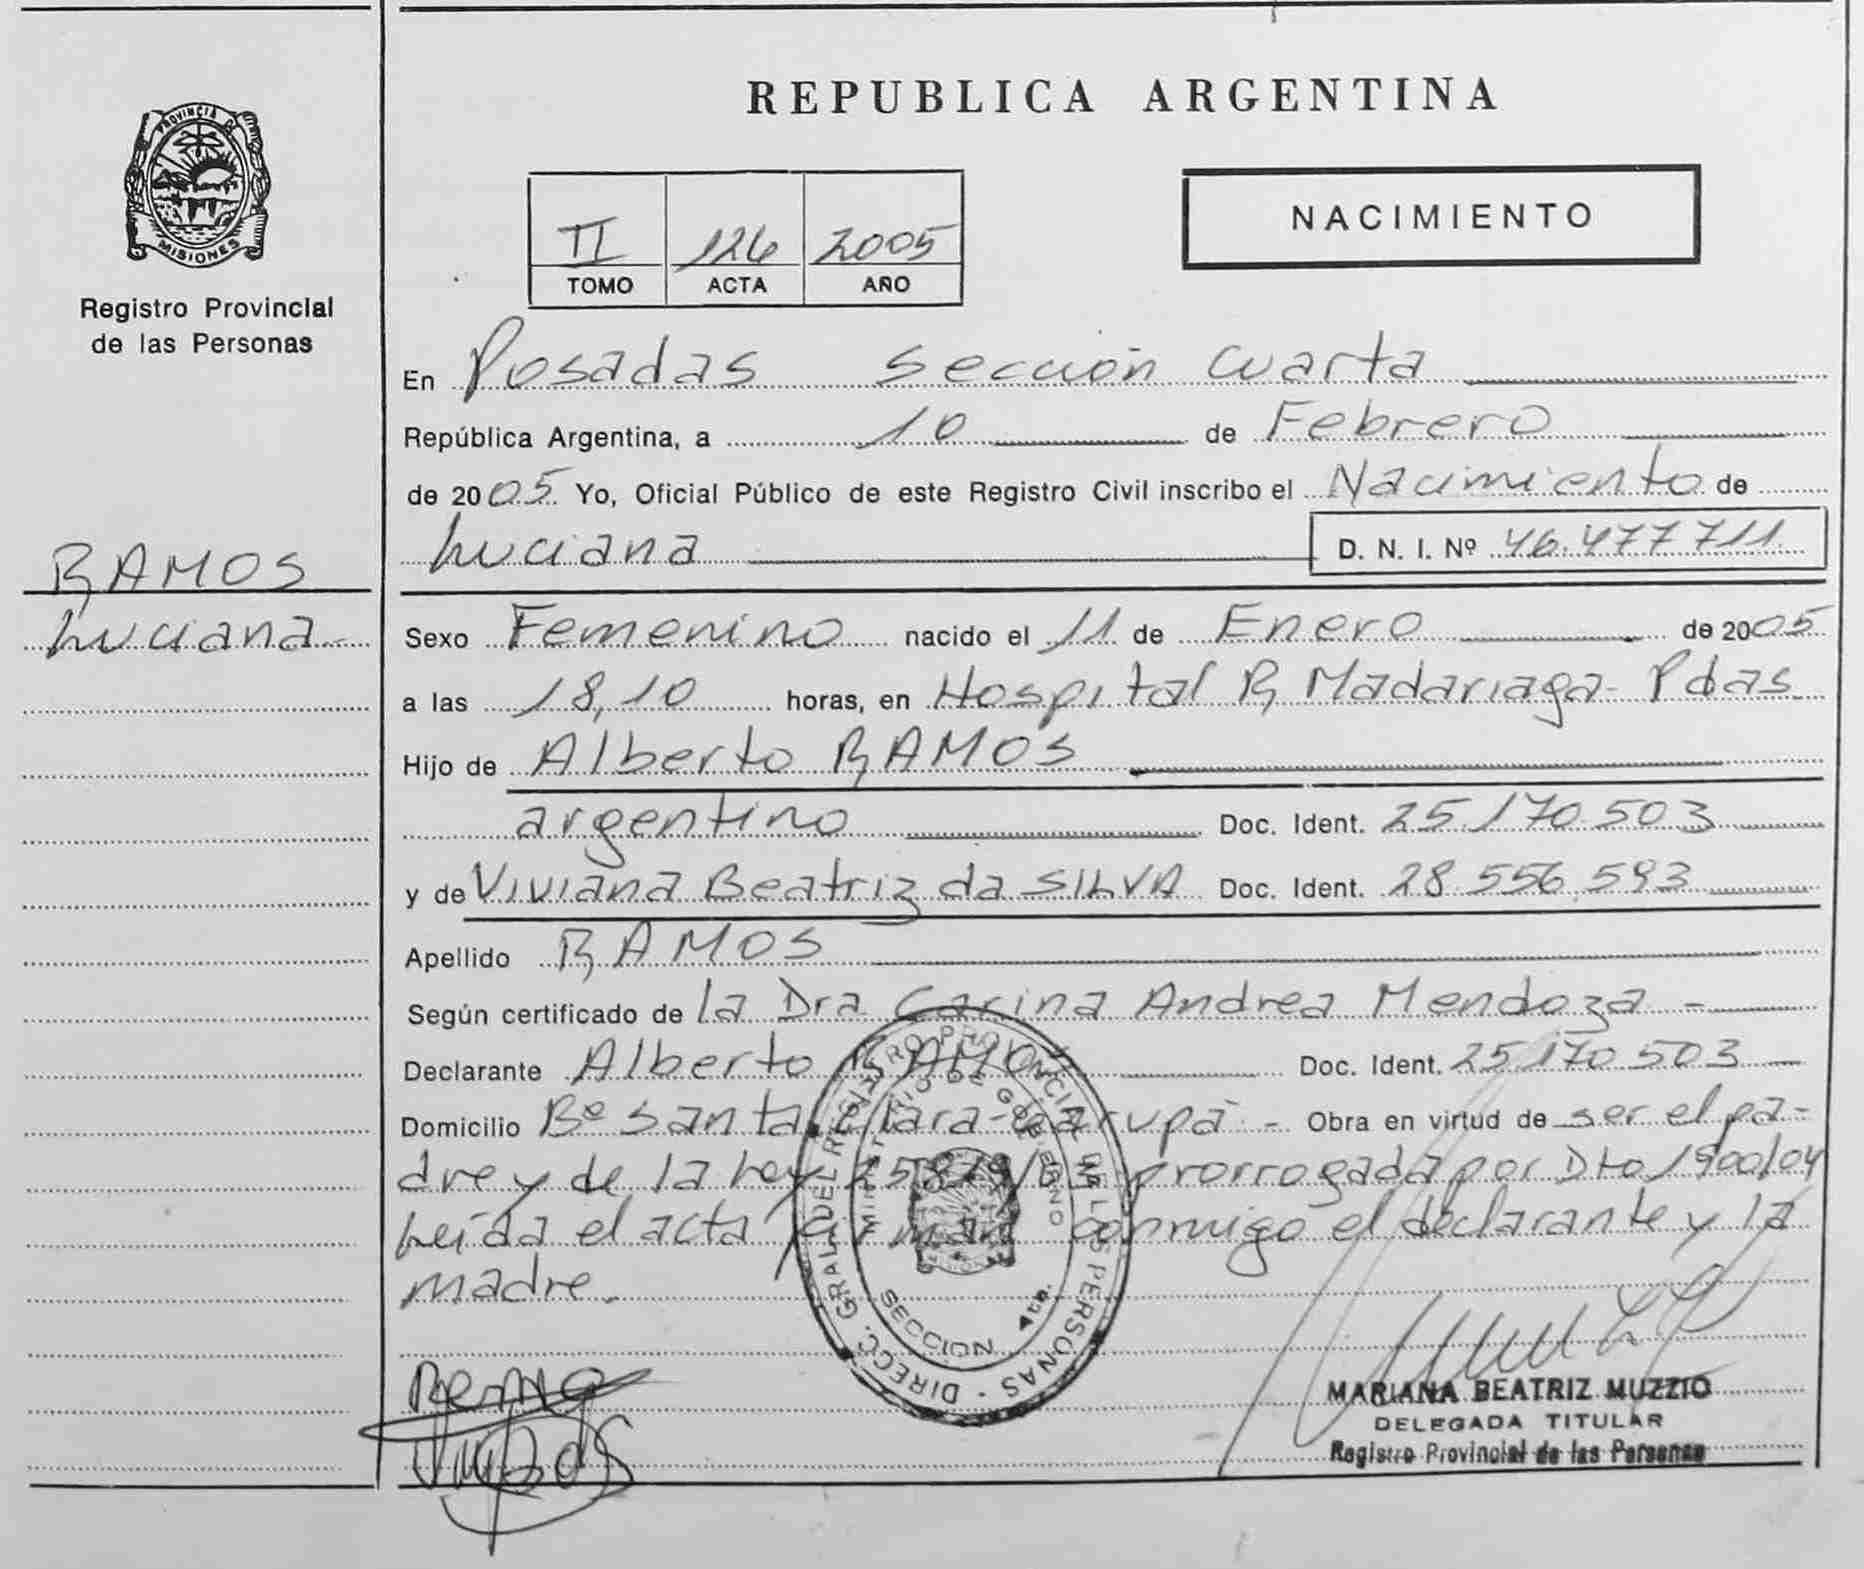 PROVINCIA DE
MISIONES
Registro Provincial
de las Personas
RAMOS
Luciana
REPUBLICA ARGENTINA
II 126 2005
TOMO ACTA AÑO
NACIMIENTO
En Posadas Sección Cuarta
República Argentina, a 10 de Febrero
de 2005 Yo, Oficial Público de este Registro Civil inscribo el Nacimiento de
Luciana D. N. I. Nº 46.477711
Sexo Femenino nacido el 11 de Enero de 2005
a las 18,10 horas, en Hospital R Madariaga - Pdas
Hijo de Alberto RAMOS
argentino Doc. Ident. 25.170.503
y de Viviana Beatriz da SILVA Doc. Ident. 28.556.593
Apellido RAMOS
Según certificado de la Dra Carina Andrea Mendoza -
Declarante Alberto RAMOS Doc. Ident. 25.170.503
Domicilio Bº Santa Clara - Garupá - Obra en virtud de ser el pa-
dre y de la Ley 25819/03 prorrogada por Dto 1900/04
Leída el acta firman conmigo el declarante y la
madre.
DIRECC. GRAL. DEL REGISTRO PROVINCIAL DE LAS PERSONAS
MINISTERIO DE GOBIERNO
SECCION 4ta.
MARIANA BEATRIZ MUZZIO
DELEGADA TITULAR
Registro Provincial de las Personas